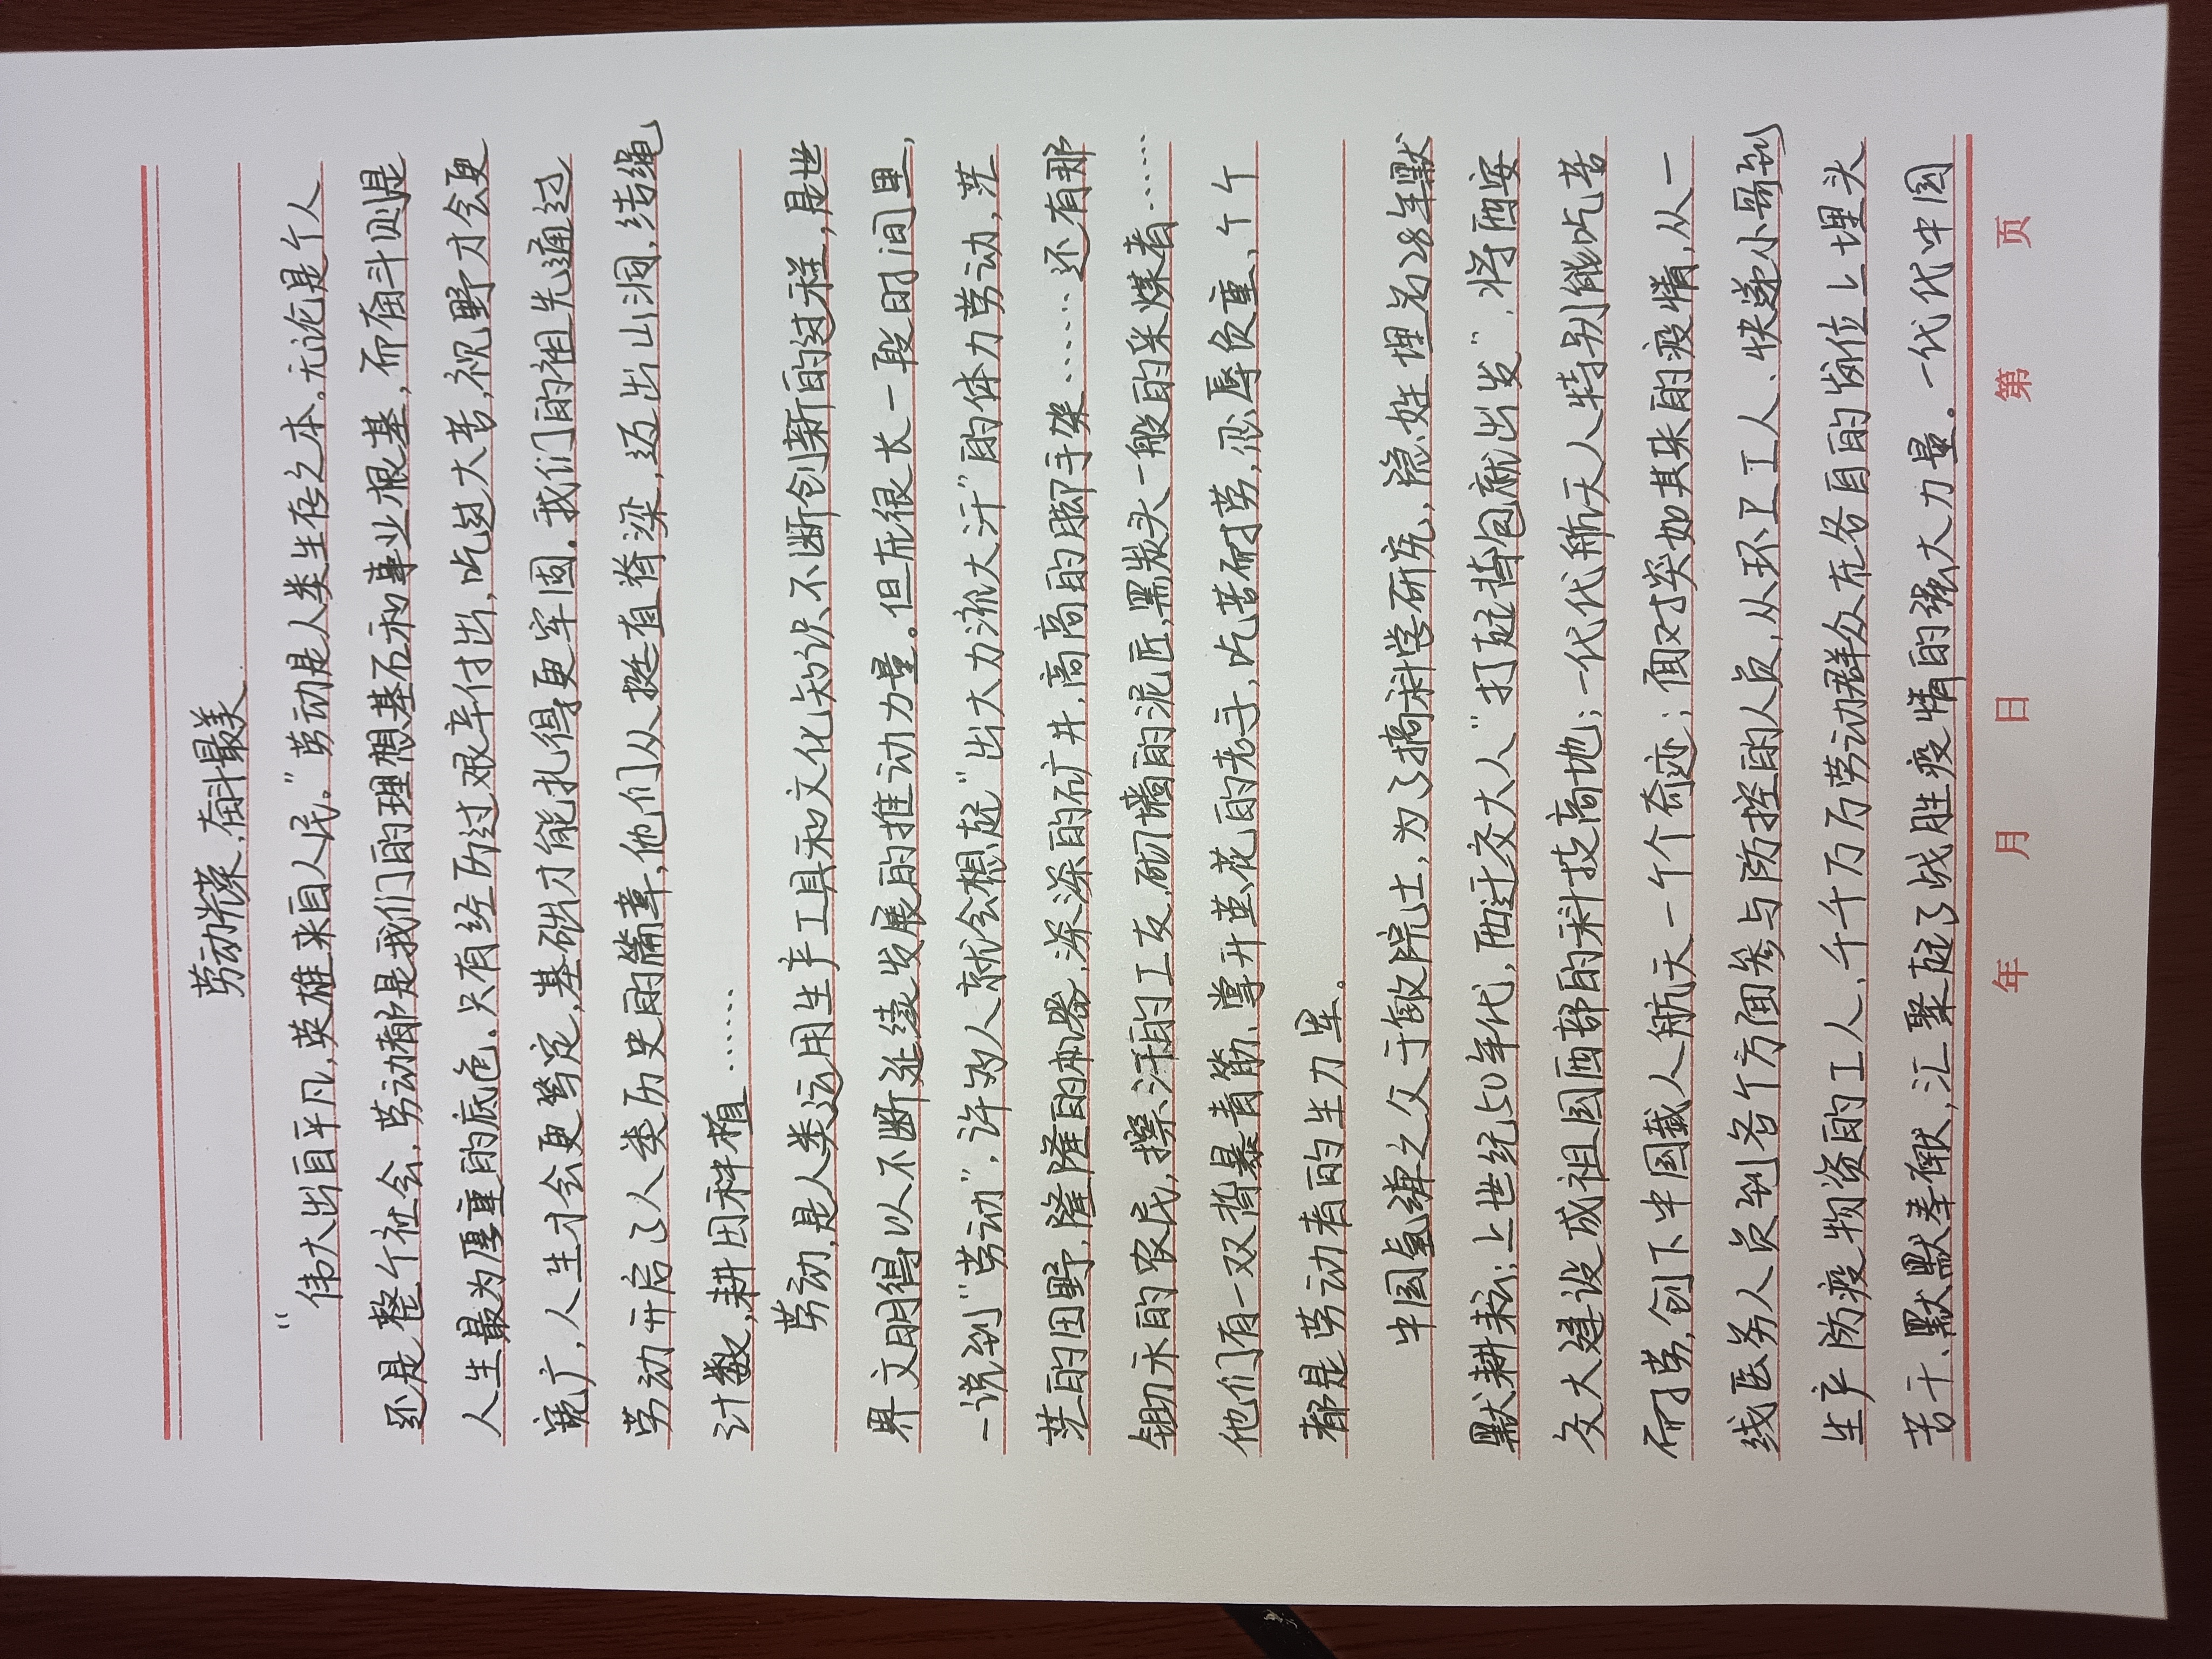 劳动光荣,奋斗最美.
“伟大出自平凡,英雄来自人民。”劳动是人类生存之本。无论是个人
还是整个社会,劳动都是我们的理想基石和事业根基,而奋斗则是
人生最为厚重的底色.只有经历过艰辛付出,吃过大苦,视野才会更
宽广,人生才会更笃定,基础才能扎得更牢固.我们的祖先通过
劳动开启了人类历史的篇章,他们从挺直脊梁,迈出山洞,结绳
计数,耕田种植……
劳动,是人类运用生产工具和文化知识不断创新的过程,是世
界文明得以不断延续发展的推动力量。但在很长一段时间里,
一说到“劳动”,许多人就会想起“出大力流大汗”的体力劳动,茫
茫的田野,隆隆的机器,深深的矿井,高高的脚手架……还有那
锄禾的农民,擦汗的工友,砌墙的泥匠,黑炭头一般的采煤者……
他们有一双蛰暴青筋、掌开茧花的老手,吃苦耐劳,忍辱负重,个个
都是劳动者的生力军。
中国氢弹之父于敏院士,为了搞科学研究,隐姓埋名28年默
默耕耘;上世纪50年代,西迁交大人“打起背包就出发”,将西安
交大建设成祖国西部的科技高地;一代代航天人特别能吃苦
耐劳,创下中国载人航天一个个奇迹;面对突如其来的疫情,从一
线医务人员到各个方面参与防控的人员,从环卫工人、快递小哥到
生产防疫物资的工人,千千万万劳动群众在各自的岗位上埋头
苦干、默默奉献,汇聚起了战胜疫情的强大力量。一代代中国
年 月 日 第 页